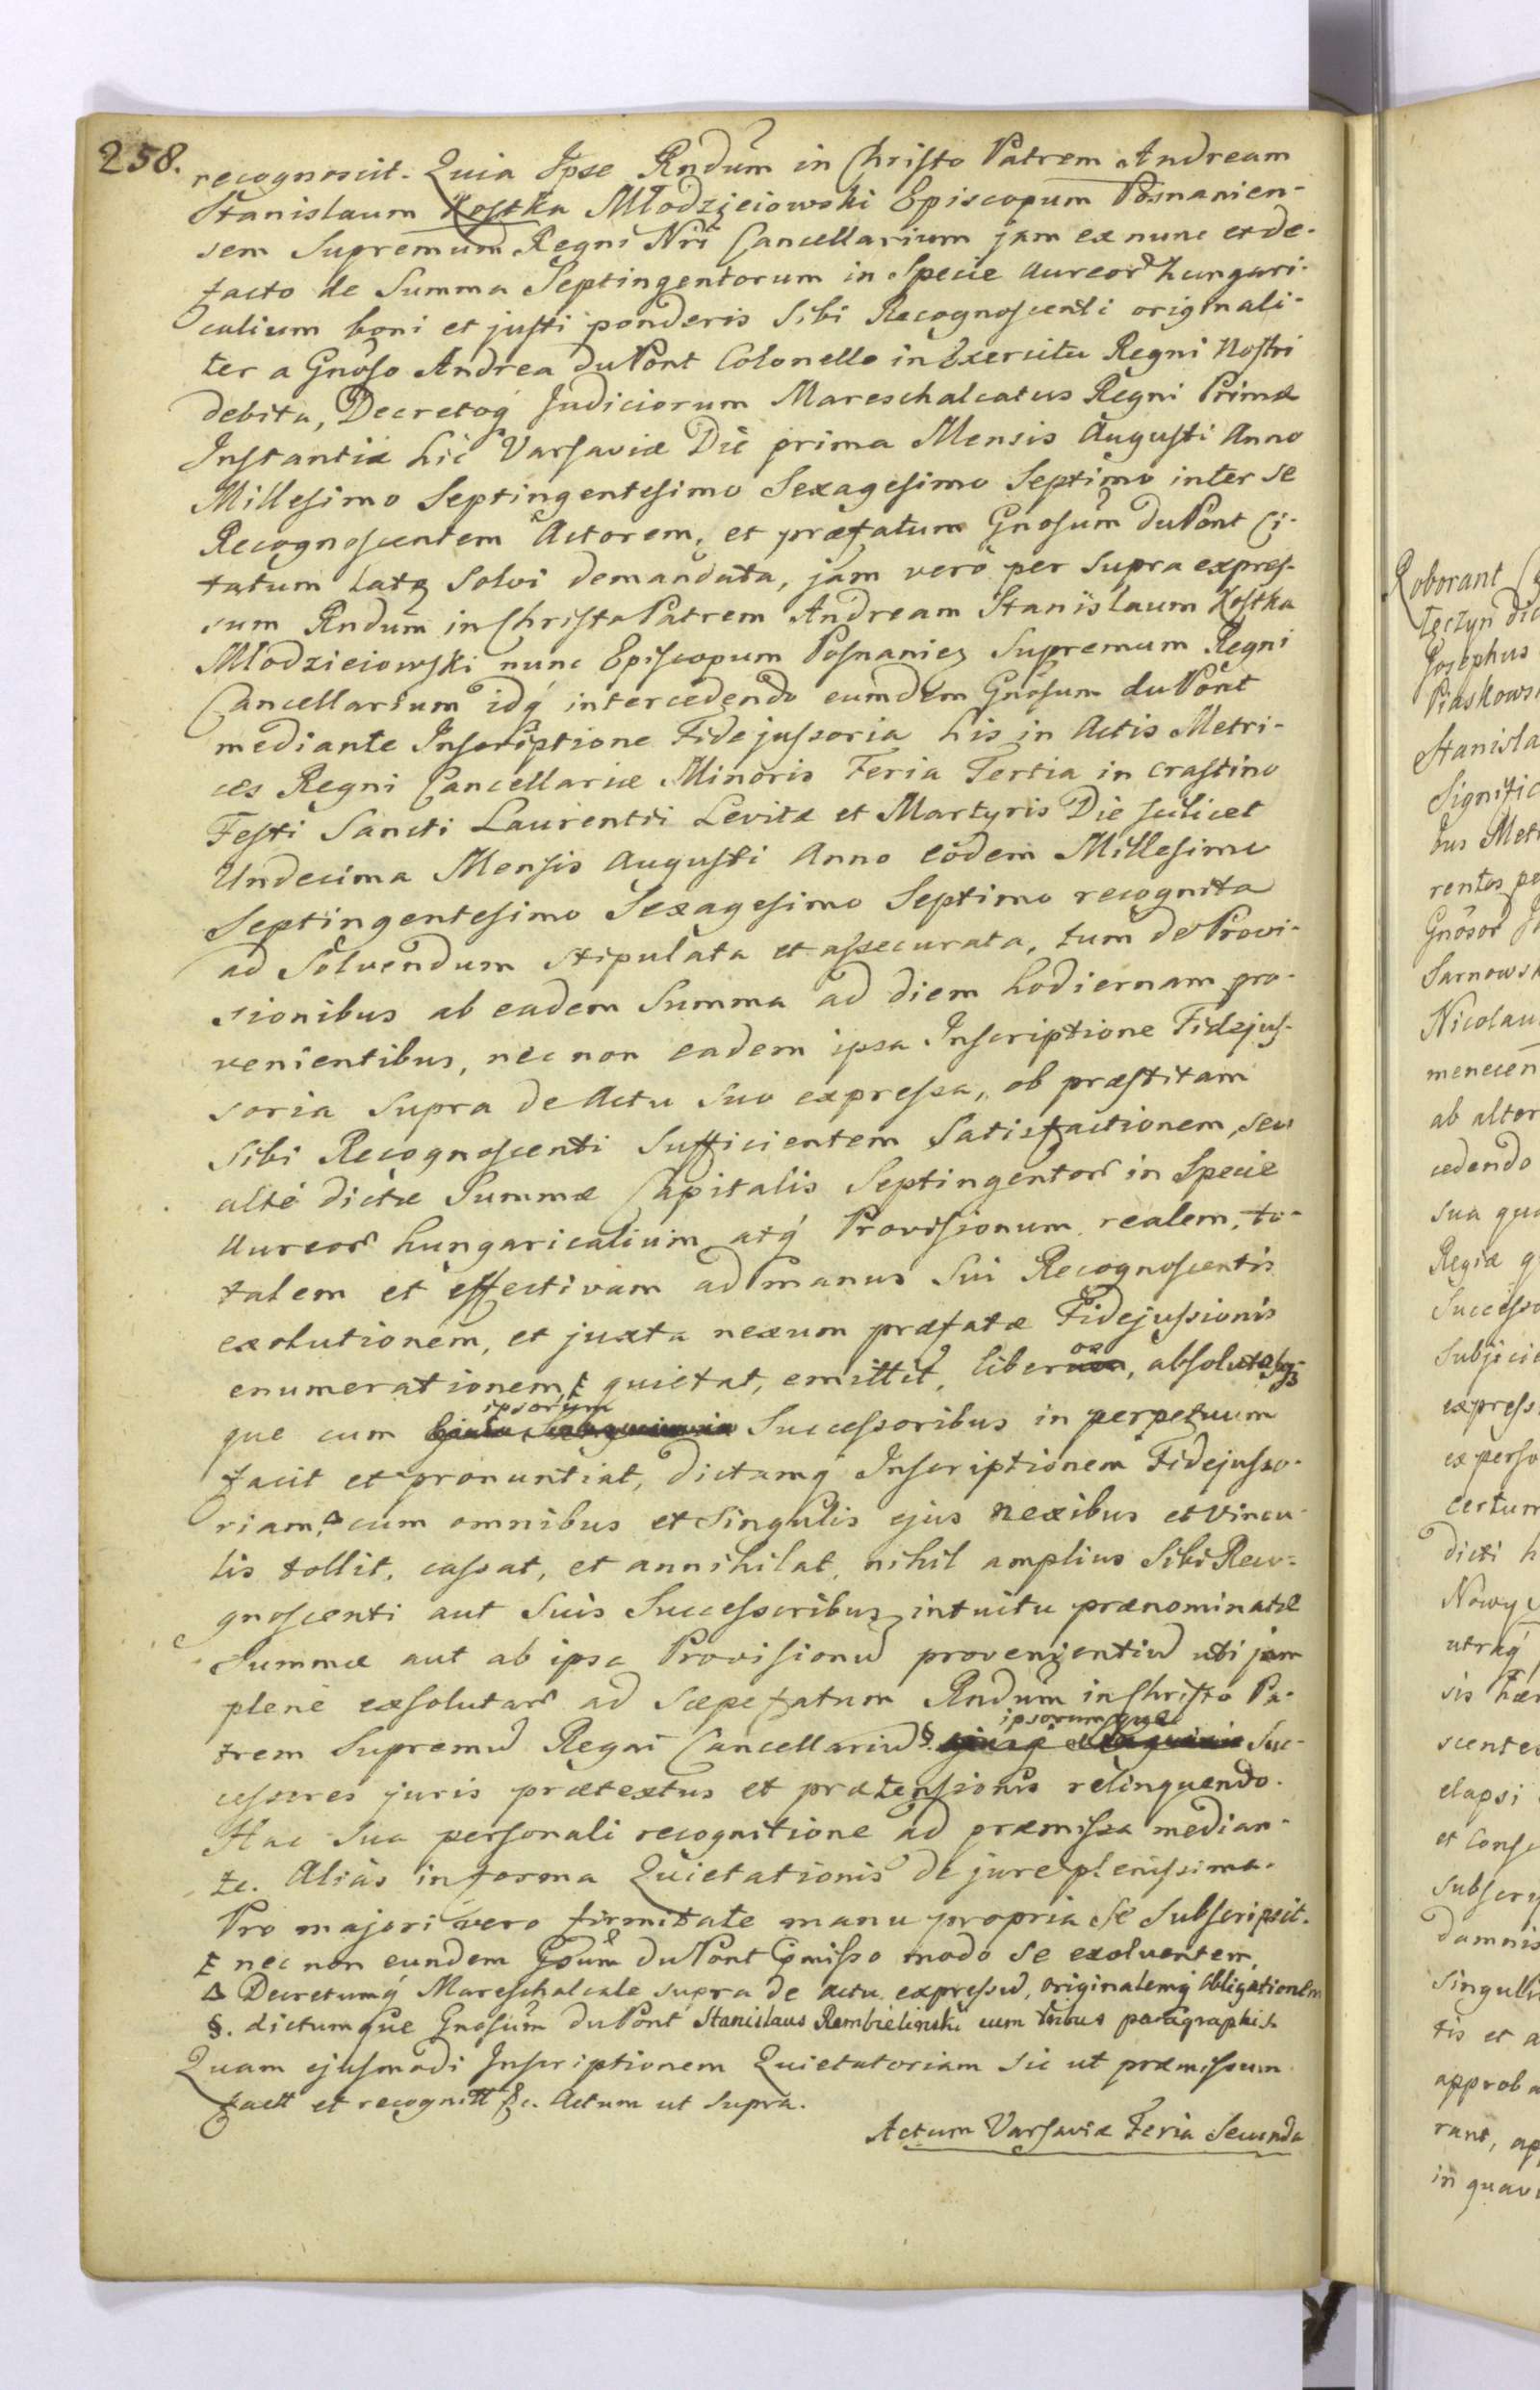 258.
recognoscit. Quia Ipse Rndum in Christo Patrem Andream
Stanislaum Kostka Młodzieiowski Episcopum Posnanien-
sem Supremum Regni Nri Cancellarium jam ex nunc et de-
facto de Summa Septingentorum in Specie Aureor hungari-
calium boni et justi ponderis Sibi Recognoscenti originali-
ter a Gnoso Andrea duPont Colonello in Exercitu Regni Nostri
debita, Decretoq Judiciorum Mareschalcatus Regni Primæ
Instantiæ hic Varsaviæ Die prima Mensis Augusti Anno
Millesimo Septingentesimo Sexagesimo Septimo inter se
Recognoscentem Actorem, et præfatum Gnosum duPont Ci-
tatum latq Solvi demandata, jam vero per supra expres-
sum Rndum in Christo Patrem Andream Stanislaum Kostka
Młodzieiowski nunc Episcopum Posnaniez Supremum Regni
Cancellarium idq intercedendo eumdem Gnosum duPont
mediante Inscriptione Fidejussoria his in Actis Metri-
ces Regni Cancellariæ Minoris Feria Tertia in crastino
Festi Sancti Laurentii Levitæ et Martyris Die scilicet
Undecima Mensis Augusti Anno eodem Millesimo
Septingentesimo Sexagesimo Septimo recognita
ad Solvendum stipulata et assecurata, tum de Provi-
sionibus ab eadem Summa ad diem hodiernam pro-
venientibus, nec non eadem ipsa Inscriptione Fidejus-
soria supra de Actu suo expressa, ob præstitam
sibi Recognoscenti Sufficientem Satisfactionem, seu
alte dictæ Summæ Capitalis Septingentor in Specie
Aureor hungaricalium atq Provisionum realem, to-
talem et effectivam ad manus Sui Recognoscentis
exolutionem, et juxta nexum præfatæ Fidejussionis
enumerationem, quietat, emittit, liberos, absolutosq
que cum ipsorum Successoribus in perpetuum
facit et pronuntiat, dictamq Inscriptionem Fidejusso-
riam, Δ cum omnibus et singulis ejus nexibus et vincu-
lis tollit, cassat, et annihilat, nihil amplius Sibi Reco-
gnoscenti aut Suis Successoribus, intuitu prænominatæ
Summæ aut ab ipsa Provisionu provenientiu uti jam
plene exsolutar ad sæpefatum Rndum in Christo Pa-
trem Supremu Regni Cancellariu § ipsorumque Suc-
cessores juris prætextus et prætensionis relinquendo.
Hac Sua personali recognitione ad præmissa median-
te. Alias in forma Quietationis de jure plenissima.
Pro majori vero firmitate manu propria Se Subscripsit.
nec non eundem Gsum duPont pmisso modo se exolventem,
Δ Decretumq Mareschalcale supra de actu expressu, originalemq Obligationem
§. dictumque Gnosum DuPont Stanislaus Rembieliński cum tribus paragraphis.
Quam ejusmodi Inscriptionem Quietatoriam sic ut præmissum
factt et recognitt &c. Actum ut supra.
Actum Varsaviæ Feria Secunda
Roborant
Tęczyn
Josephus
Piaskows
Stanisla
Signific
bus Met
rentos pe
Gnosor
Sarnowsk
Nicolau
menecen
ab alter
cedendo
sua qua
Regiæ q
Successo
Subjicie
express
ex perso
certum
dicti h
Nowy
utraq
sis hær
scente
elapsi
et Conse
subscri
damnis
singuli
tis et a
approba
rant, ap
in quav